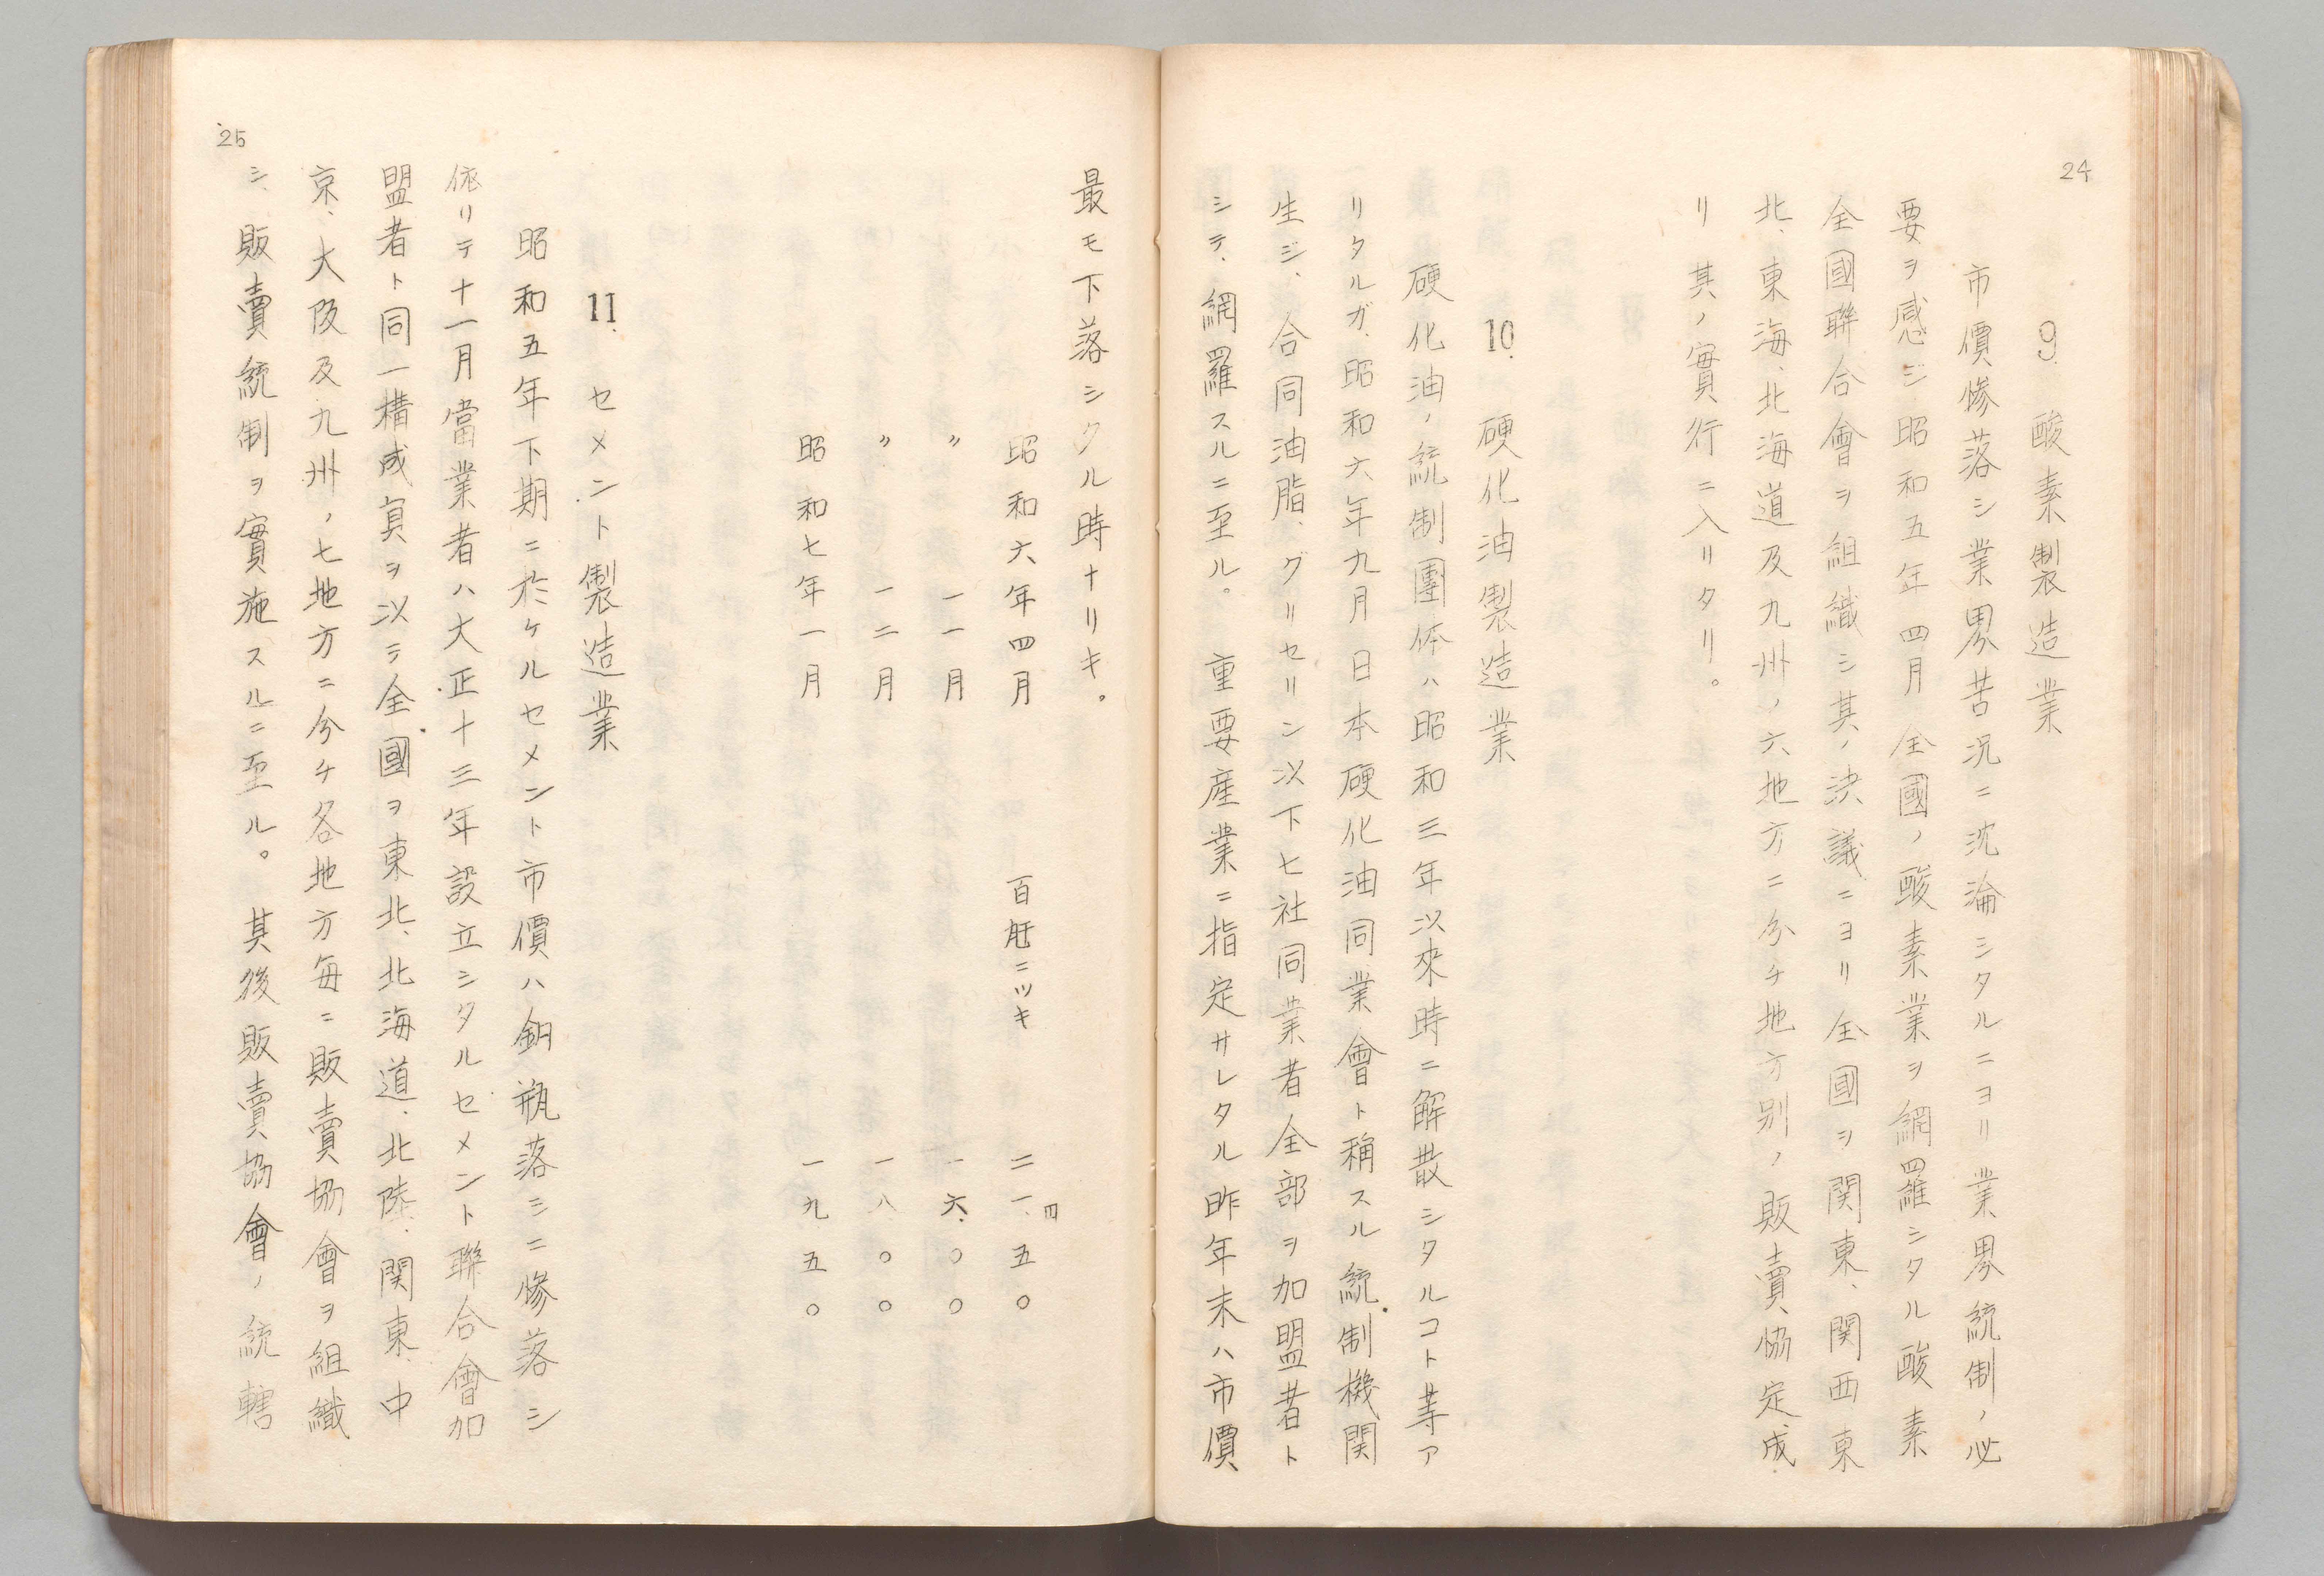 24
9. 酸素製造業
市價惨落シ業界苦況ニ沈淪シタルニヨリ業界統制ノ必
要ヲ感ジ昭和五年四月全國ノ酸素業ヲ網羅シタル酸素
全國聯合會ヲ組織シ其ノ決議ニヨリ全國ヲ関東、関西東
北、東海、北海道及九州ノ六地方ニ分チ地方別ノ販賣協定成
リ其ノ實行ニ入リタリ。
10. 硬化油製造業
硬化油ノ統制團体ハ昭和三年以來時ニ解散シタルコト等ア
リタルガ、昭和六年九月日本硬化油同業會ト稱スル統制機関
生ジ、合同油脂、グリセリン以下七社同業者全部ヲ加盟者ト
シテ、網羅スルニ至ル。重要産業ニ指定サレタル昨年末ハ市價
最モ下落シタル時ナリキ。
昭和六年四月 百瓩ニツキ 二一、五〇 四
〃 一一月 一六、〇〇
〃 一二月 一八、〇〇
昭和七年一月 一九五〇
11. セメント製造業
昭和五年下期ニ於ケルセメント市價ハ釼瓶落シニ惨落シ
依リテ十一月當業者ハ大正十三年設立シタルセメント聯合會加
盟者ト同一構成員ヲ以テ全國ヲ東北、北海道、北陸、関東、中
京、大阪及九州ノ七地方ニ分チ各地方毎ニ販賣協會ヲ組織
シ、販賣統制ヲ實施スルニ至ル。其後販賣協會ノ統轄
25